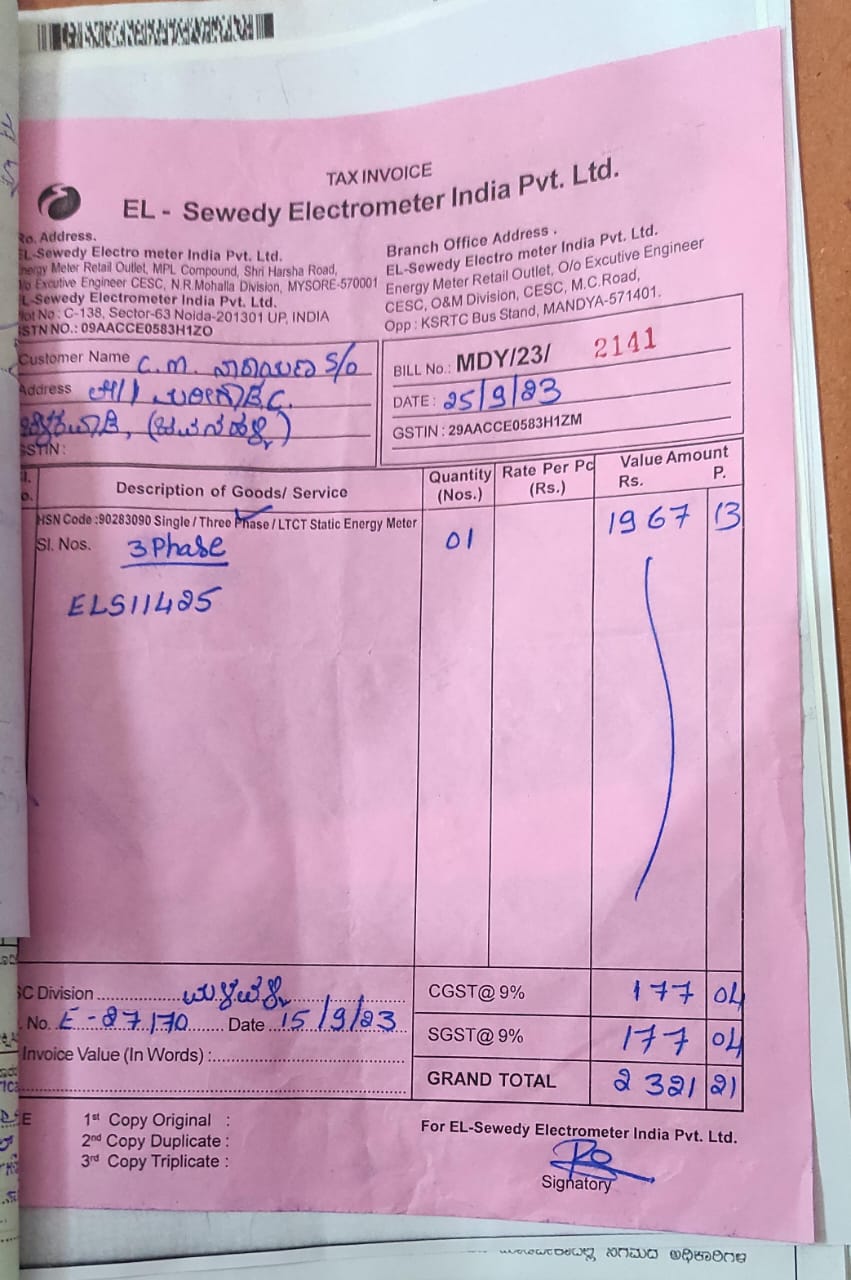 TAX INVOICE
EL - Sewedy Electrometer India Pvt. Ltd.
Ro. Address.
EL-Sewedy Electro meter India Pvt. Ltd.
Energy Meter Retail Outlet, MPL Compound, Shri Harsha Road,
Excutive Engineer CESC, N.R.Mohalla Division, MYSORE-570001
EL-Sewedy Electrometer India Pvt. Ltd.
Plot No : C-138, Sector-63 Noida-201301 UP, INDIA
GSTN NO.: 09AACCE0583H1ZO
Branch Office Address .
EL-Sewedy Electro meter India Pvt. Ltd.
Energy Meter Retail Outlet, O/o Excutive Engineer
CESC, O&M Division, CESC, M.C.Road,
Opp : KSRTC Bus Stand, MANDYA-571401.
Customer Name C.M. ನಾರಾಯಣ S/o
Address
GSTIN :
BILL No.: MDY/23/ 2141
DATE : 25/9/23
GSTIN : 29AACCE0583H1ZM
Description of Goods/ Service
Quantity (Nos.)
Rate Per Pc (Rs.)
Value Amount
Rs. P.
HSN Code :90283090 Single / Three Phase / LTCT Static Energy Meter
Sl. Nos. 3 Phase 01 1967 13
ELS11425
SC Division
No. E-27170 Date 15/9/23
Invoice Value (In Words) :
CGST@ 9% 177 04
SGST@ 9% 177 04
GRAND TOTAL 2321 21
1st Copy Original :
2nd Copy Duplicate :
3rd Copy Triplicate :
For EL-Sewedy Electrometer India Pvt. Ltd.
Signatory
ನಿಗಮದ ಅಧಿಕಾರಿಗಳ